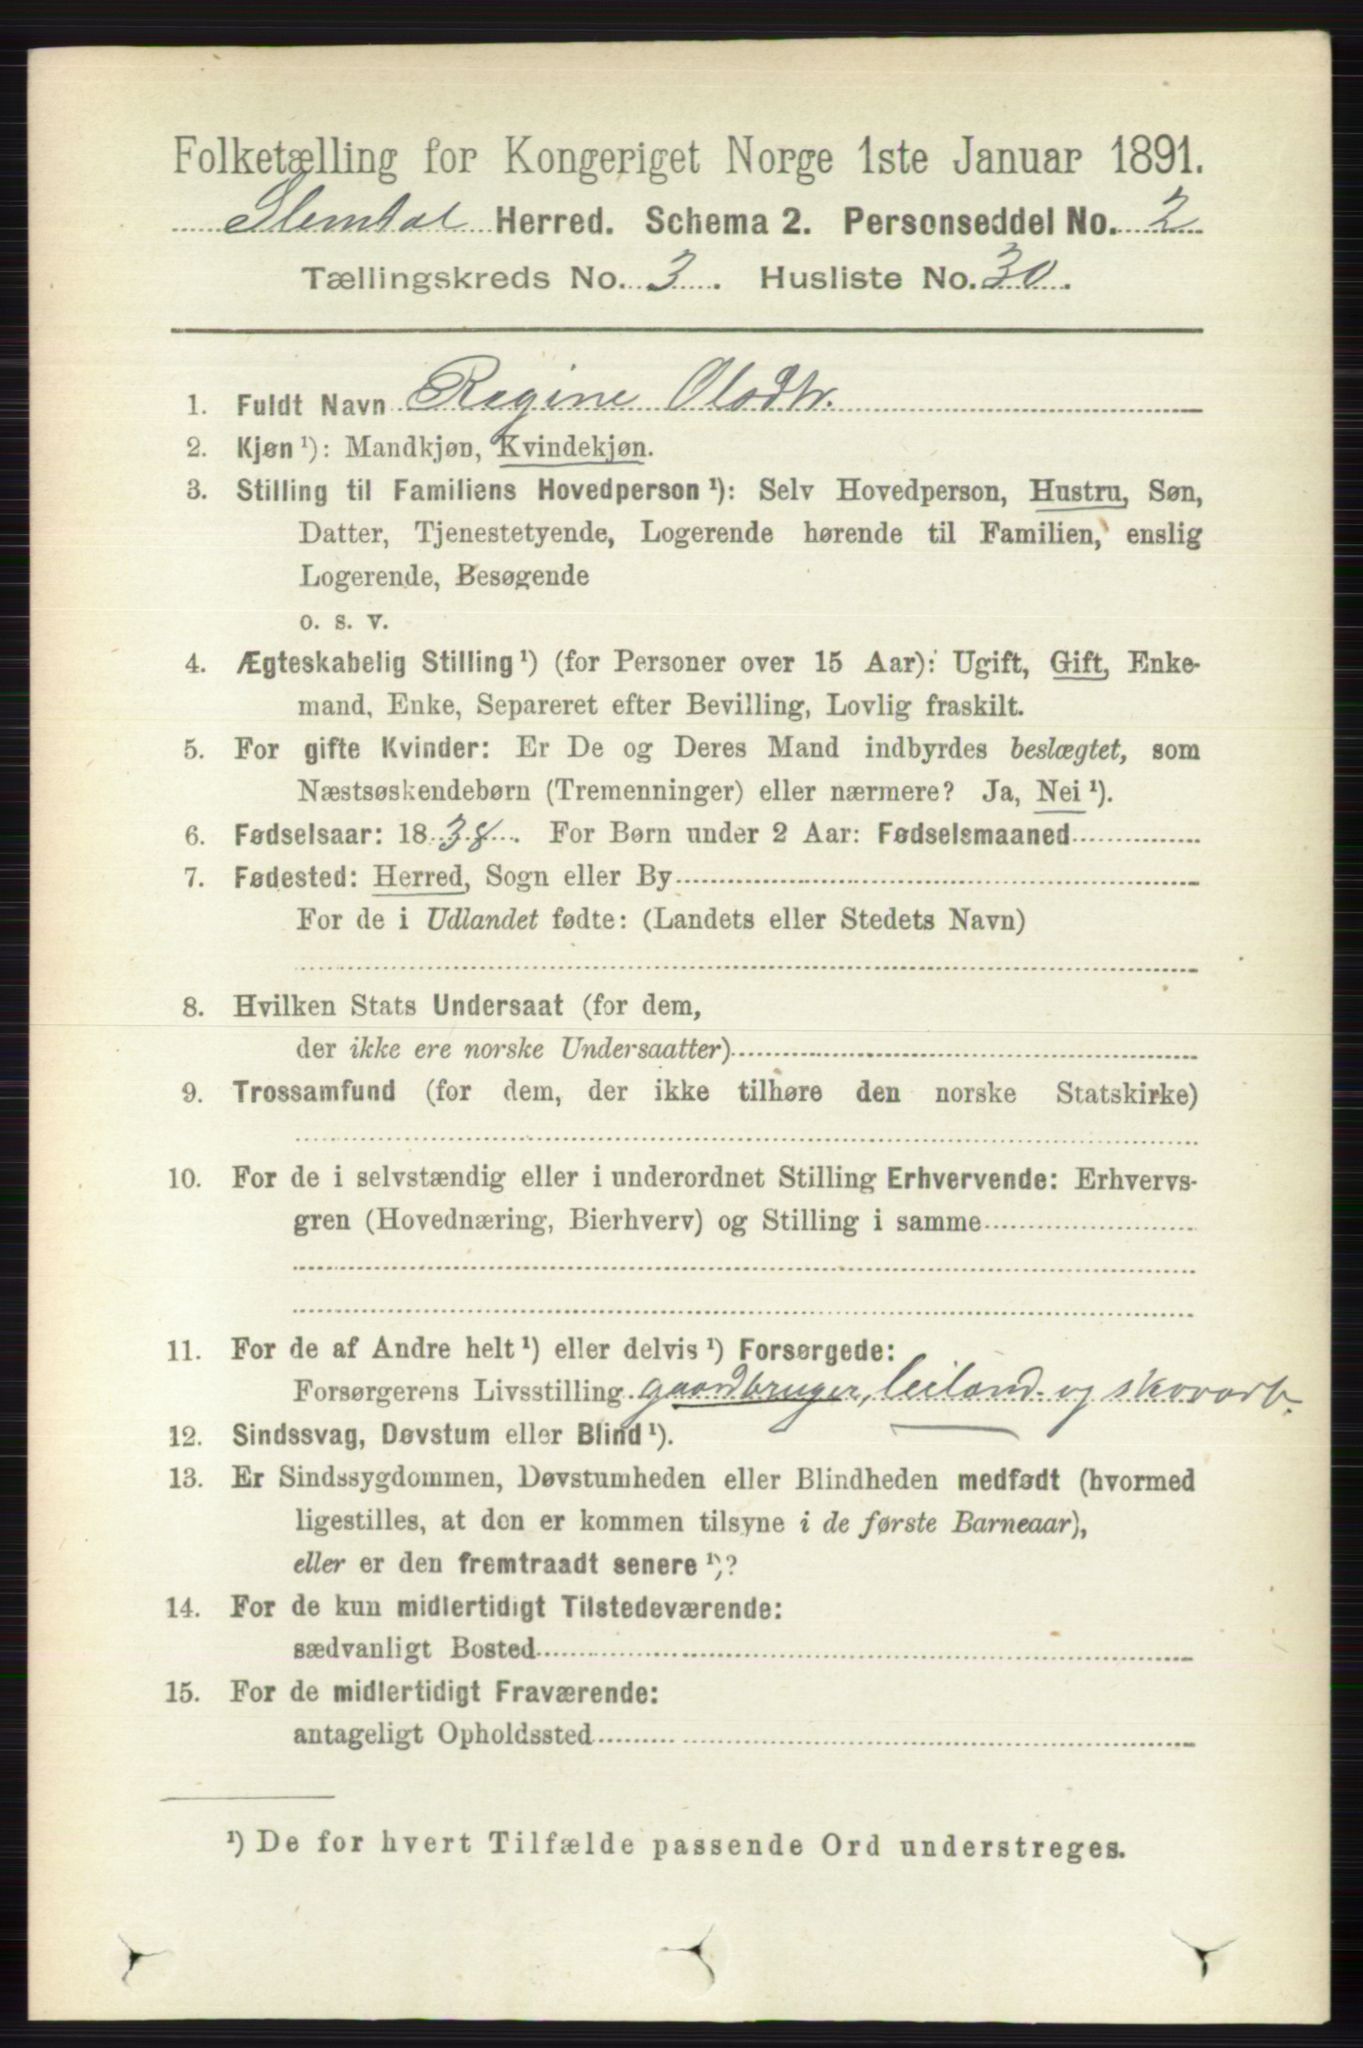 Folketælling for Kongeriget Norge 1ste Januar 1891.
Slemdal Herred. Schema 2. Personseddel No. 2
Tællingskreds No. 3. Husliste No. 30.
1. Fuldt Navn Regine Olsdtr.
2. Kjøn ¹): Mandkjøn, Kvindekjøn.
3. Stilling til Familiens Hovedperson ¹): Selv Hovedperson, Hustru, Søn,
Datter, Tjenestetyende, Logerende hørende til Familien, enslig
Logerende, Besøgende
o. s. v.
4. Ægteskabelig Stilling ¹) (for Personer over 15 Aar): Ugift, Gift, Enke-
mand, Enke, Separeret efter Bevilling, Lovlig fraskilt.
5. For gifte Kvinder: Er De og Deres Mand indbyrdes beslægtet, som
Næstsøskendebørn (Tremenninger) eller nærmere? Ja, Nei ¹).
6. Fødselsaar: 1838. For Børn under 2 Aar: Fødselsmaaned
7. Fødested: Herred, Sogn eller By
For de i Udlandet fødte: (Landets eller Stedets Navn)
8. Hvilken Stats Undersaat (for dem,
der ikke ere norske Undersaatter)
9. Trossamfund (for dem, der ikke tilhøre den norske Statskirke)
10. For de i selvstændig eller i underordnet Stilling Erhvervende: Erhvervs-
gren (Hovednæring, Bierhverv) og Stilling i samme
11. For de af Andre helt ¹) eller delvis ¹) Forsørgede:
Forsørgerens Livsstilling gaardbruger, leiland. og skovarb.
12. Sindssvag, Døvstum eller Blind ¹).
13. Er Sindssygdommen, Døvstumheden eller Blindheden medfødt (hvormed
ligestilles, at den er kommen tilsyne i de første Barneaar),
eller er den fremtraadt senere ¹)?
14. For de kun midlertidigt Tilstedeværende:
sædvanligt Bosted
15. For de midlertidigt Fraværende:
antageligt Opholdssted
¹) De for hvert Tilfælde passende Ord understreges.